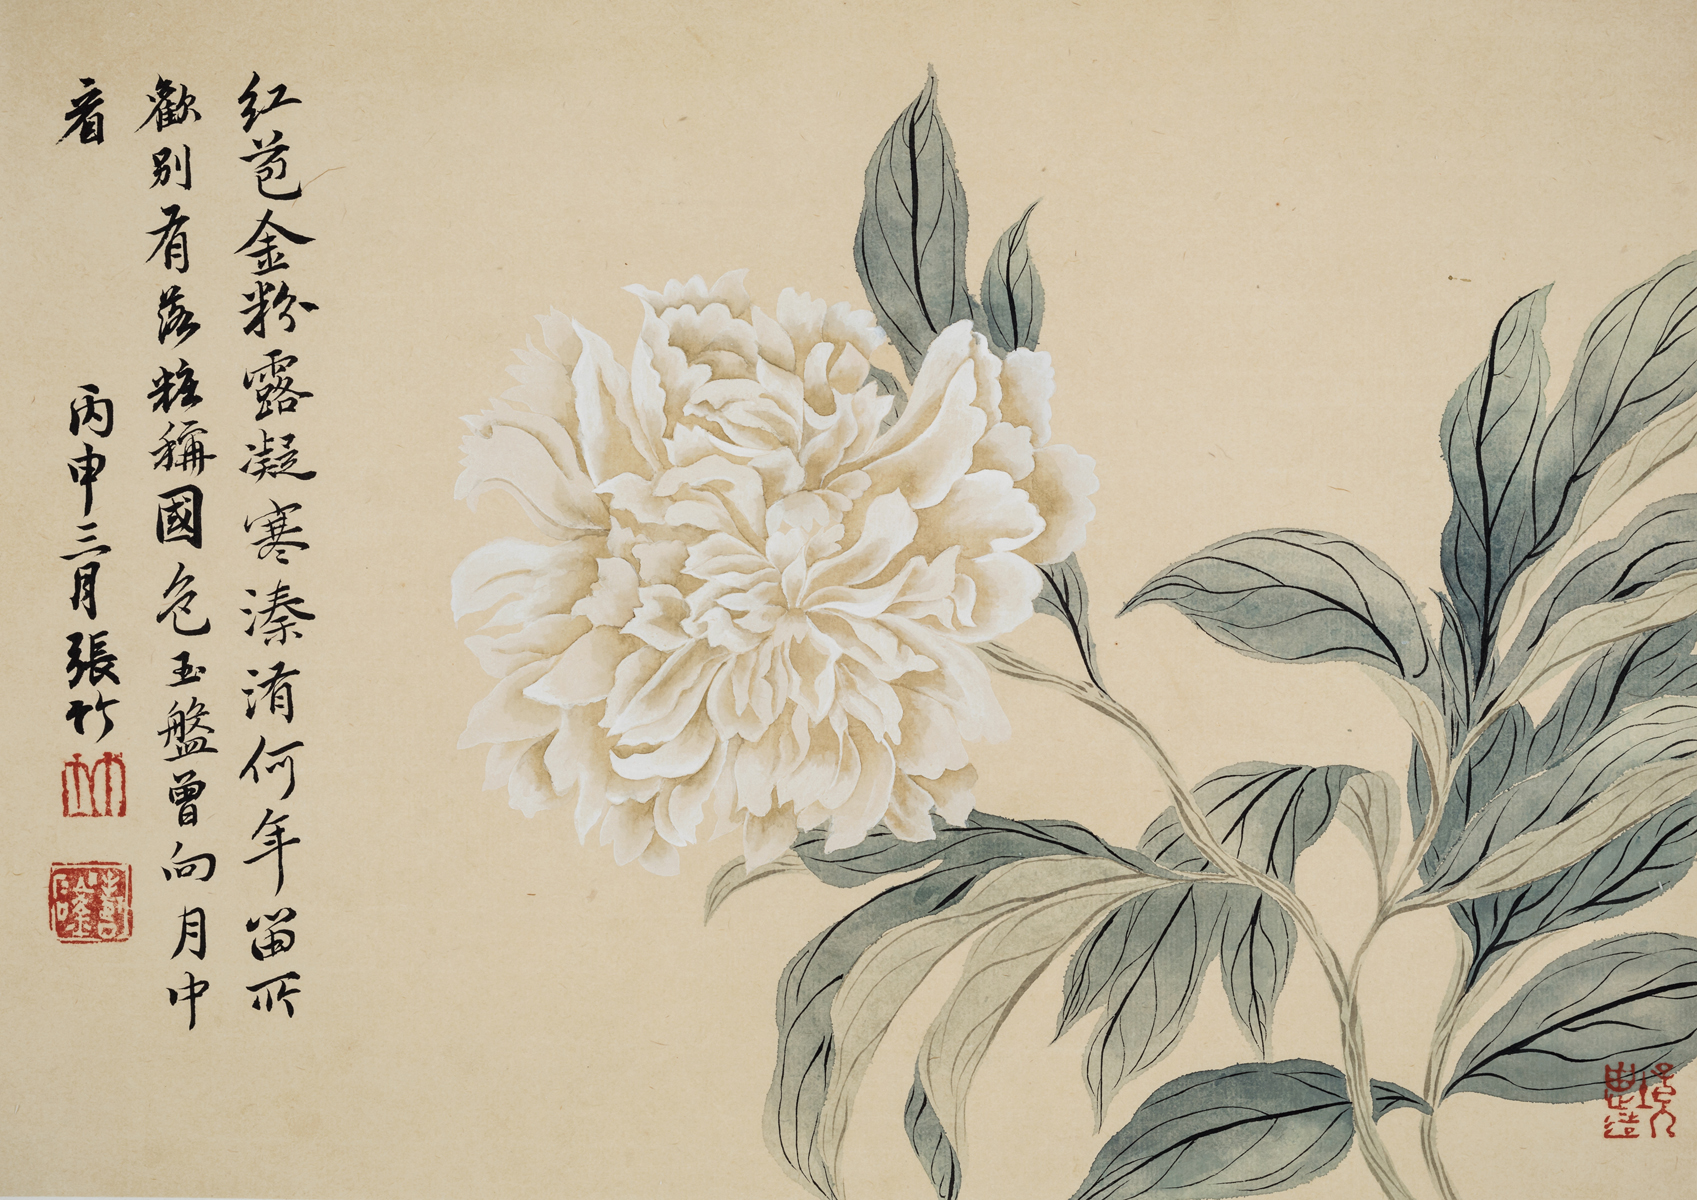 红苞金粉露凝寒溱洧何年留所
歡別有落粧稱國色玉盤曾向月中
看
丙申三月張竹